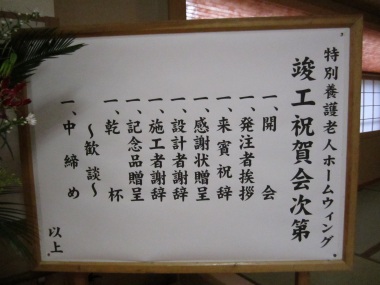 特別養護老人ホームウィング
竣工祝賀会次第
一、開会
一、発注者挨拶
一、来賓祝辞
一、感謝状贈呈
一、設計者謝辞
一、施工者謝辞
一、記念品贈呈
一、乾杯
〜歓談〜
一、中締め
以上